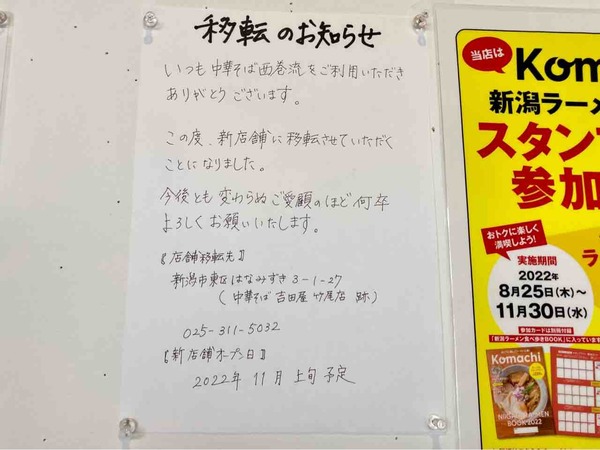 移転のお知らせ
いつも中華そば西巻流をご利用いただき
ありがとうございます。
この度、新店舗に移転させていただく
ことになりました。
今後とも変わらぬご愛顧のほど何卒
よろしくお願いいたします。
〖店舗移転先〗
新潟市東区はなみずき3-1-27
(中華そば 吉田屋 竹尾店 跡)
025-311-5032
〖新店舗オープン日〗
2022年11月上旬予定
当店は
Kom
新潟ラーメ
スタン
参加
おトクに楽しく
満喫しよう!
実施期間
2022年
8月25日(木)〜
11月30日(水)
参加カードは別冊付録
「新潟ラーメン食べ歩きBOOK」に入っています
Komachi
NIIGATA RAMEN
BOOK 2022